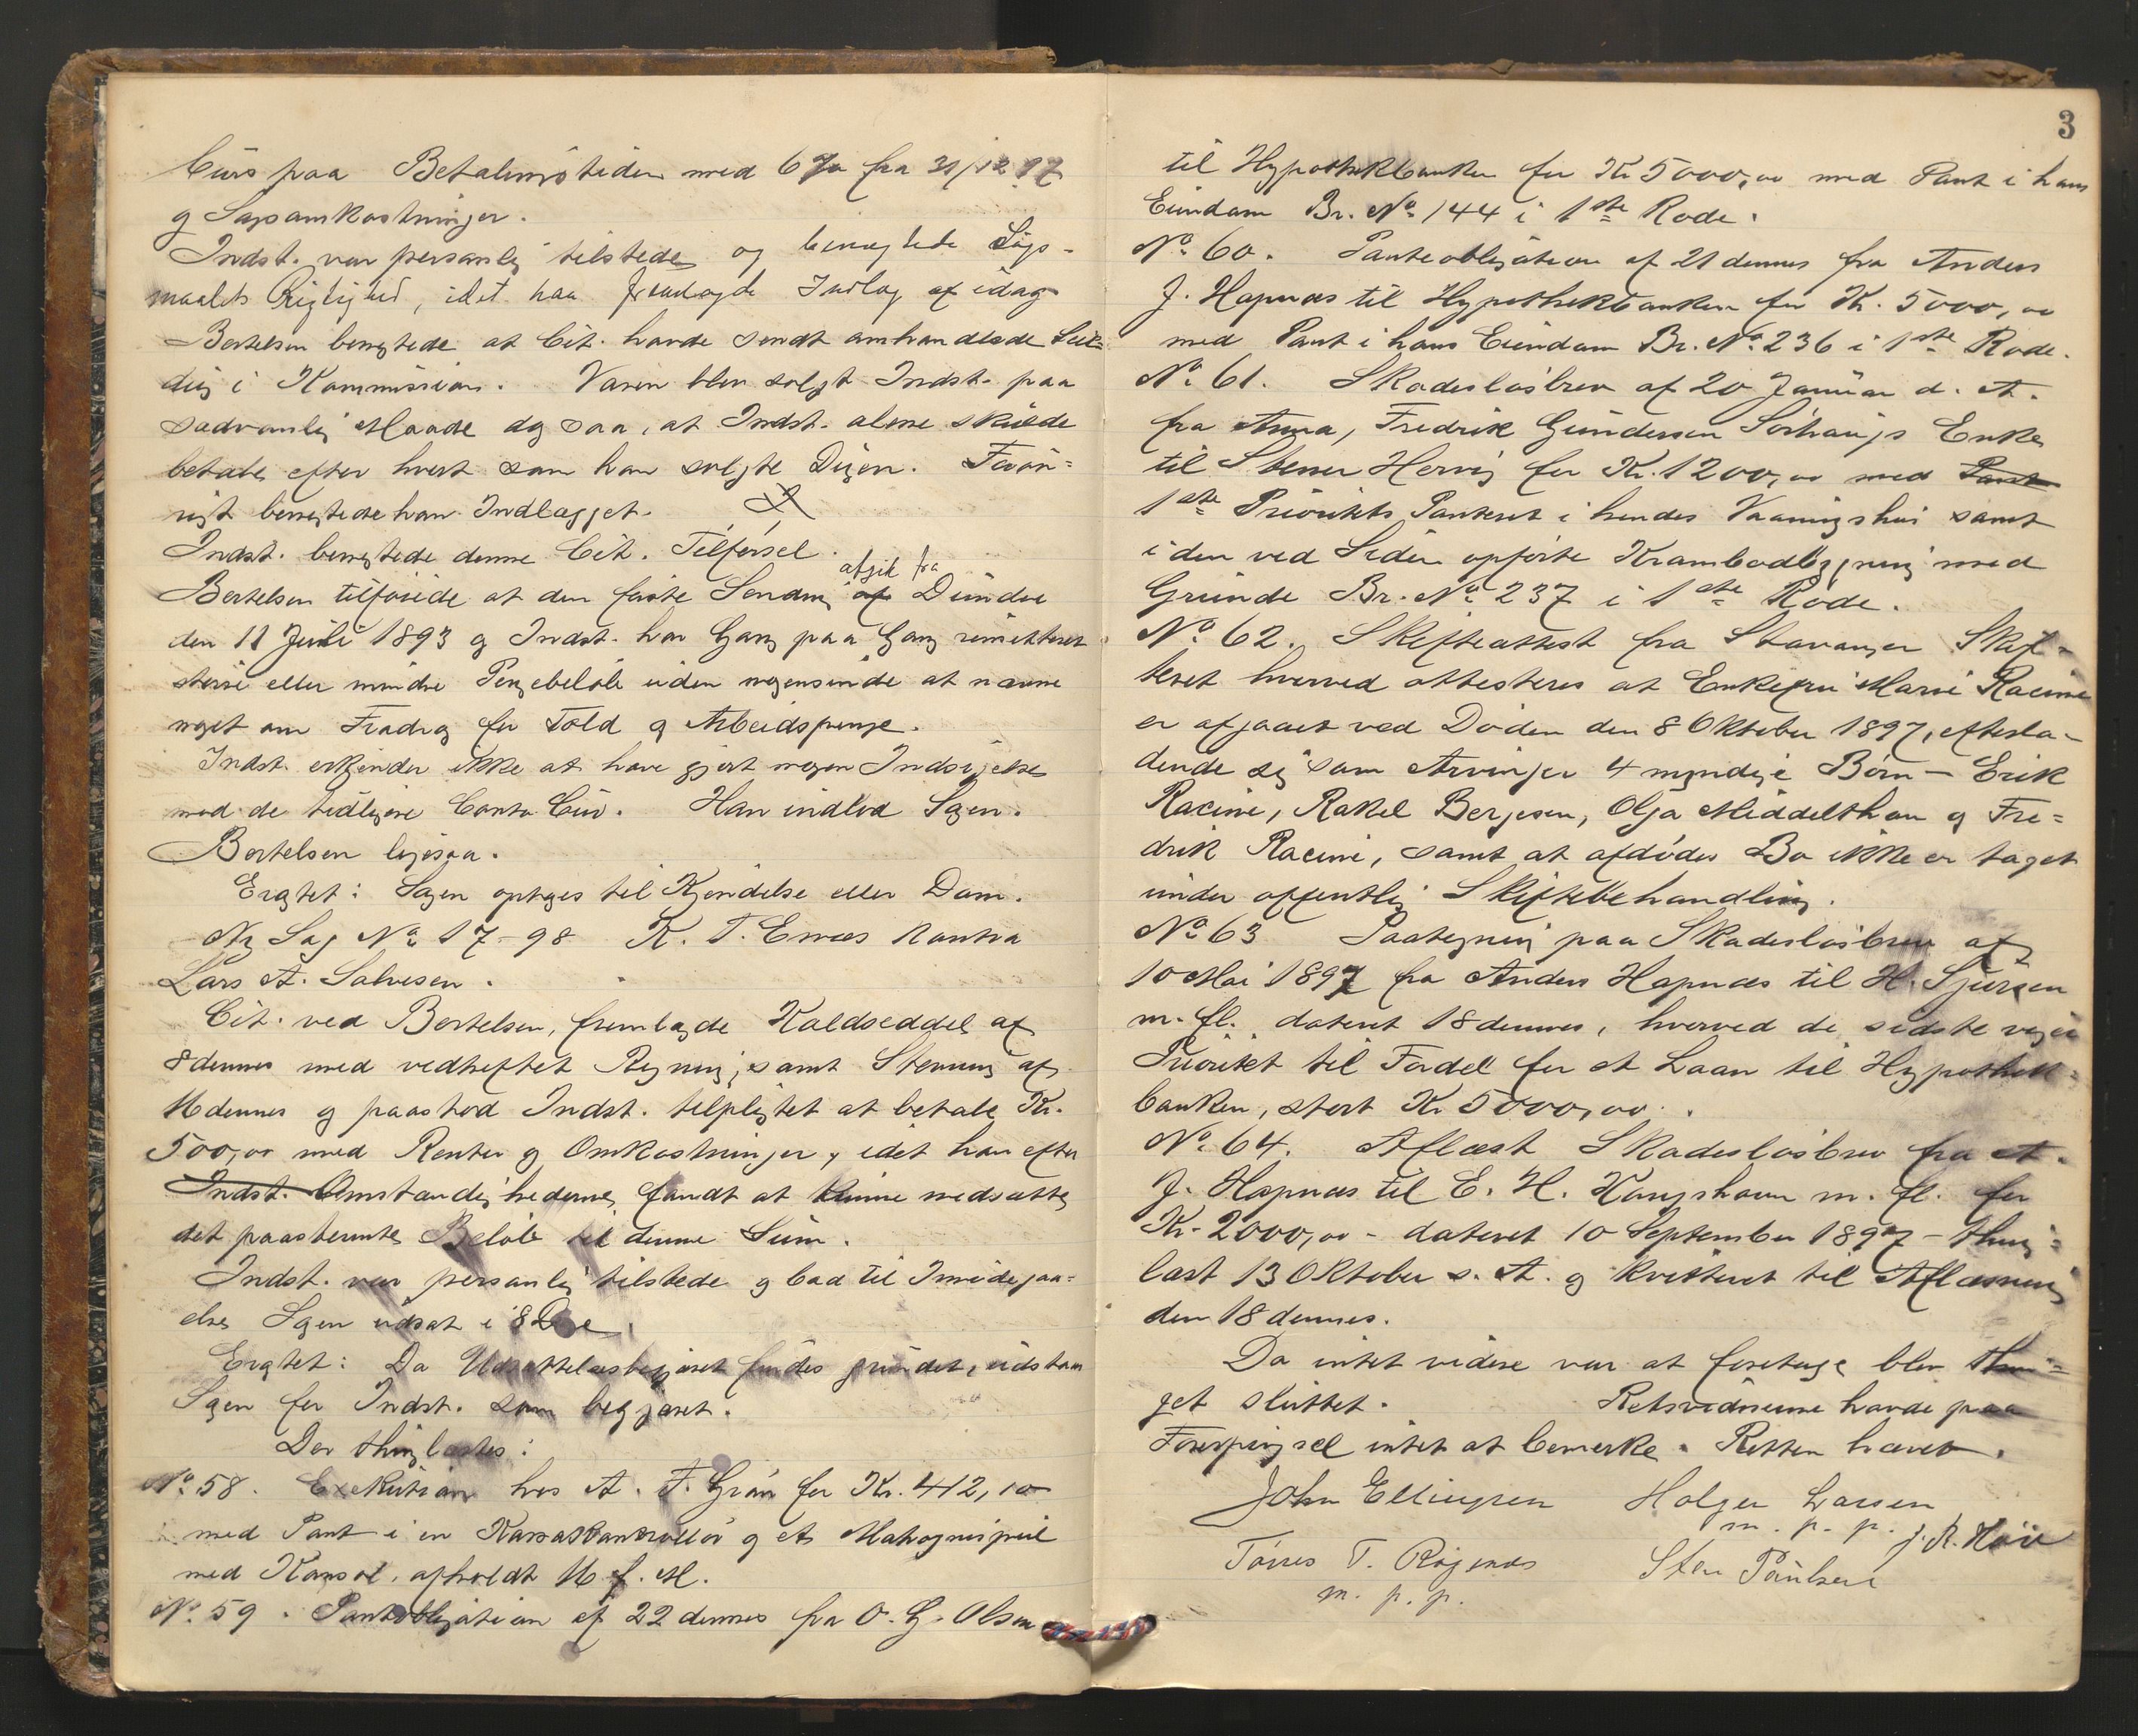 Curs paa Betalingstiden med 6 % fra 31/12 97
og Sagsomkostninger.
Indst. var personlig tilstede og benegtede Søgs-
maalets Rigtighed, idet han fremlagde Indlæg af idag.
Bertelsen benegtede at Cit. havde sendt omhandlede
i Kommission. Varen blev solgt Indst. paa
sædvanlig Maade og saa, at Indst. alene skulde
betale efter hvert som han solgte Digen. Forøv-
rigt benegtede han Indlægget.
Indst. benegtede denne Cit. Tilførsel.
Bertelsen tilføiede at den første Sending afgik fra Dundee
den 11 Juli 1893 og Indst. har Gang paa Gang remitteret
større eller mindre Pengebeløb uden nogensinde at nævne
noget om Fradrag for Told og Arbeidspenge.
Indst. erkjender ikke at have gjort nogen Indsigelse
mod de tidligere Conto Cur. Han indlod Sagen.
Bertelsen ligesaa.
Eragtet: Sagen optages til Kjendelse eller Dom.
Ny Sag No 17-98 K. T. Ernæs kontra
Lars A. Salvesen.
Cit. ved Bertelsen, fremlagde Kaldseddel af
8 dennes med vedheftet Regning, samt Stevning af
16 dennes og paastod Indst. tilpligtet at betale Kr.
500,00 med Renter og Omkostninger, idet han efter
Indst. Omstændighederne fandt at kunne nedsætte
det paastevnte Beløb til denne Sum.
Indst. var personlig tilstede og bad til Imødegaa-
else Sagen udsat i 8 Dage.
Eragtet: Da Udsættelsesbegjæret findes grundet, udstaar
Sagen for Indst. som begjæret.
Der thinglæstes:
No 58. Exekution hos A. F. Grøn for Kr. 412,10
med Pant i en Kassakontrollør og et Mahognispeil
med Konsol, afholdt 16 f. M.
No 59. Pantobligation af 22 dennes fra O. G. Olsen
3
til Hypothekbanken for Kr 5000,00 med Pant i hans
Eiendom Br. No 144 i 1ste Rode.
No 60. Panteobligation af 21 dennes fra Anders
J. Hapnæs til Hypothekbanken for Kr. 5000,00
med Pant i hans Eiendom Br. No 236 i 1ste Rode.
No 61. Skadesløsbrev af 20 Januar d. A.
fra Anna, Fredrik Gundersen Sørhaugs Enke
til Stener Hervig for Kr. 1200,00 med Pant
1ste Prioritets Panteret i hendes Vaaningshus samt
i den ved Siden opførte Krambodbygning med
Grunde Br. No 237 i 1ste Rode.
No 62. Skifteattest fra Stavanger Skif-
teret hvorved attesteres at Enkefru Marie Racine
er afgaaet ved Døden den 8 Oktober 1897, efterla-
dende sig som Arvinger 4 myndige Børn – Erik
Racine, Rakel Bergesen, Olga Middelthon og Fre-
drik Racine, samt at afdødes Bo ikke er taget
under offentlig Skiftebehandling.
No 63 Paategning paa Skadesløsbrev af
10 Mai 1897 fra Anders Hapnæs til H. Sjursen
m. fl. dateret 18 dennes, hvorved de sidste viger
Prioritet til Fordel for et Laan til Hypothek-
banken, stort Kr 5000,00.
No 64. Aflæst Skadesløsbrev fra A.
J. Hapnæs til E. H. Kongshavn m. fl. for
Kr. 2000,00 – dateret 10 September 1897 – thing-
læst 13 Oktober s. A. og kvitteret til Aflæsning
den 18 dennes.
Da intet videre var at foretage blev Thin-
get sluttet. Retsvidnerne havde paa
Forespørgsel intet at bemerke. Retten hævet.
John Ellingsen Holger Larsen
m. p. p. J. R. Høie
Tørres T. Røgenæs Sten Paulsen
m. p. p.